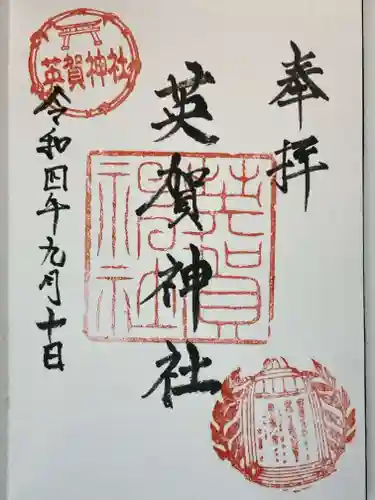 奉拝
英賀神社
英賀神社
英賀神社
令和四年九月十日